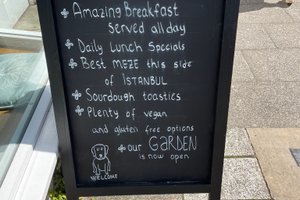 Amazing Breakfast
served all day
Daily Lunch Specials
Best MEZE this side
of ISTANBUL
Sourdough toasties
Plenty of vegan
and gluten free options
our GARDEN
is now open
WELCOME